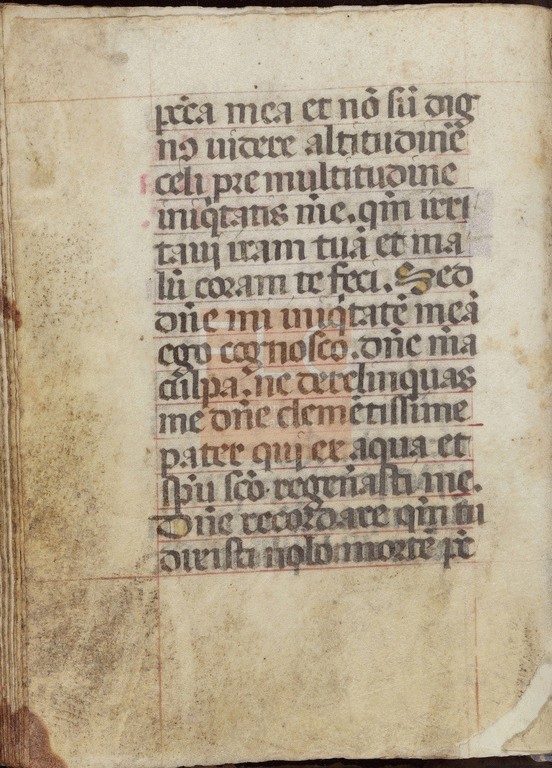 pcc̄a mea et nō sū dig
no videre altitudinē
celi pre multitudine
iniq̄tatis m̄e. qm̄ irri
taui iram tuā et ma
lū coram te feci. Sed
dn̄e mi iniq̄tatē meā
ego cognosco. dn̄e m̄a
culpa. ne derelinquas
me dn̄e clemētissime
pater qui ex aqua et
sp̄u sc̄o regen̄asti me.
Dn̄e recordare qm̄ tu
dixisti nolo mortē pc̄